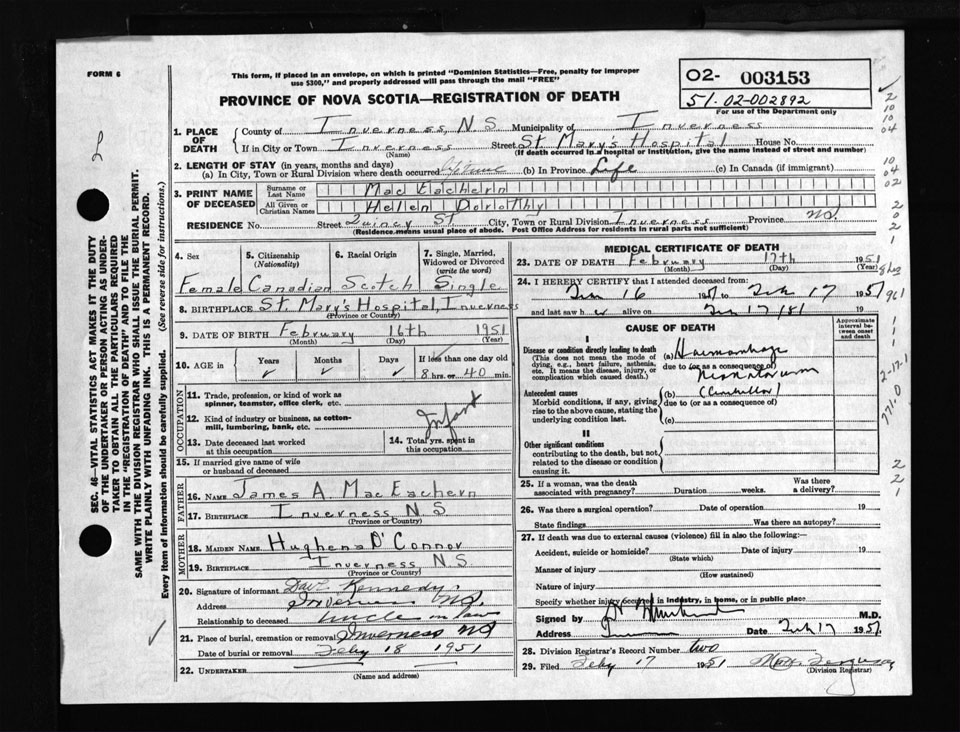 FORM 6
This form, if placed in an envelope, on which is printed "Dominion Statistics—Free, penalty for improper
use $300," and properly addressed will pass through the mail "FREE"
PROVINCE OF NOVA SCOTIA—REGISTRATION OF DEATH
O2- 003153
51-02-002892
For use of the Department only
1. PLACE OF DEATH
County of Inverness, N S Municipality of Inverness
If in City or Town Inverness Street St. Mary's Hospital House No.
(Name) (If death occurred in a hospital or institution, give the name instead of street and number)
2. LENGTH OF STAY (in years, months and days)
(a) In City, Town or Rural Division where death occurred lifetime (b) In Province Life (c) In Canada (if immigrant)
3. PRINT NAME OF DECEASED
Surname or Last Name Mac Eachern
All Given or Christian Names Hellen Dorothy
RESIDENCE No. Street Quincy St. City, Town or Rural Division Inverness Province NS.
(Residence means usual place of abode. Post Office Address for residents in rural parts not sufficient)
4. Sex Female
5. Citizenship (Nationality) Canadian
6. Racial Origin Scotch
7. Single, Married, Widowed or Divorced (write the word) Single
8. BIRTHPLACE St. Mary's Hospital, Inverness
(Province or Country)
9. DATE OF BIRTH February 16th 1951
(Month) (Day) (Year)
10. AGE Years Months Days If less than one day old
8 hrs. or 40 min.
OCCUPATION
11. Trade, profession, or kind of work as spinner, teamster, office clerk, etc.
12. Kind of industry or business, as cotton-mill, lumbering, bank, etc. Infant
13. Date deceased last worked at this occupation
14. Total yrs. spent in this occupation
15. If married give name of wife or husband of deceased
FATHER
16. Name James A. Mac Eachern
17. BIRTHPLACE Inverness, N S
(Province or Country)
MOTHER
18. MAIDEN NAME Hughena O'Connor
19. BIRTHPLACE Inverness N.S
(Province or Country)
20. Signature of informant Kennedy
Address Inverness NS.
Relationship to deceased uncle in law
21. Place of burial, cremation or removal Inverness NS
Date of burial or removal Feby 18 1951
22. UNDERTAKER
(Name and address)
MEDICAL CERTIFICATE OF DEATH
23. DATE OF DEATH February 17th 1951
(Month) (Day) (Year)
24. I HEREBY CERTIFY that I attended deceased from:
16 1951 to Feb 17 1951
and last saw her alive on Feb 17/51 19
CAUSE OF DEATH
Approximate interval between onset and death
I
Disease or condition directly leading to death
(This does not mean the mode of dying, e.g., heart failure, asthenia, etc. It means the disease, injury, or complication which caused death.)
(a) Haemorrhage
due to (or as a consequence of)
Neonatorum
Antecedent causes
Morbid conditions, if any, giving rise to the above cause, stating the underlying condition last.
(b)
due to (or as a consequence of)
(c)
II
Other significant conditions contributing to the death, but not related to the disease or condition causing it.
25. If a woman, was the death associated with pregnancy? Duration weeks. Was there a delivery?
26. Was there a surgical operation? Date of operation 19
State findings Was there an autopsy?
27. If death was due to external causes (violence) fill in also the following:—
Accident, suicide or homicide? Date of injury 19
(State which)
Manner of injury
(How sustained)
Nature of injury
Specify whether injury occurred in industry, in home, or in public place
Signed by M.D.
Address Date Feb 17 1951
28. Division Registrar's Record Number two
29. Filed Feby 17 1951
(Division Registrar)
SEC. 46—VITAL STATISTICS ACT MAKES IT THE DUTY
OF THE UNDERTAKER OR PERSON ACTING AS UNDER-
TAKER TO OBTAIN ALL THE PARTICULARS REQUIRED
IN THE "REGISTRATION OF DEATH" AND TO FILE THE
SAME WITH THE DIVISION REGISTRAR WHO SHALL ISSUE THE BURIAL PERMIT.
WRITE PLAINLY WITH UNFADING INK. THIS IS A PERMANENT RECORD.
Every item of information should be carefully supplied. (See reverse side for instructions.)
2
10
10
04
10
04
02
2
0
2
1
8 hrs
961
2-17-1
771.0
2
2
1